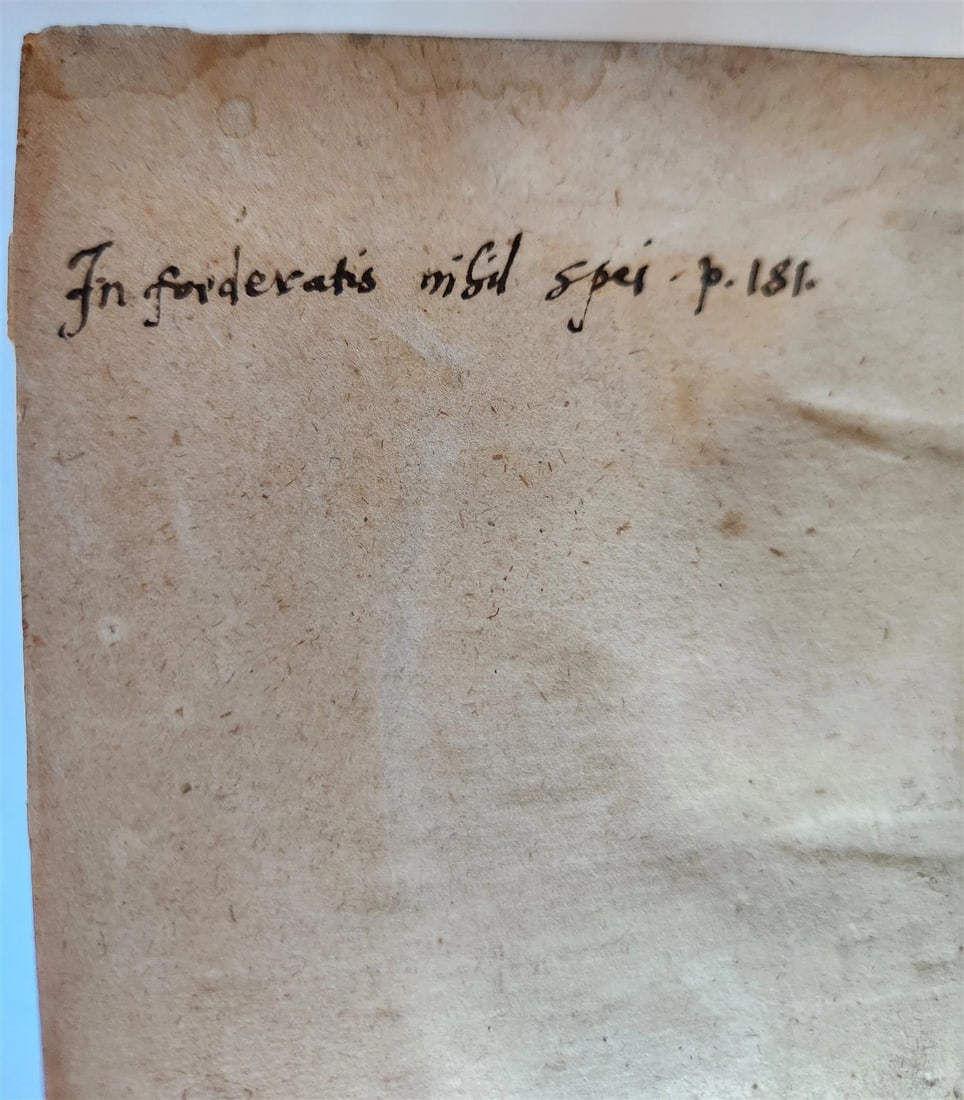 In foederatis nihil spei. p. 181.